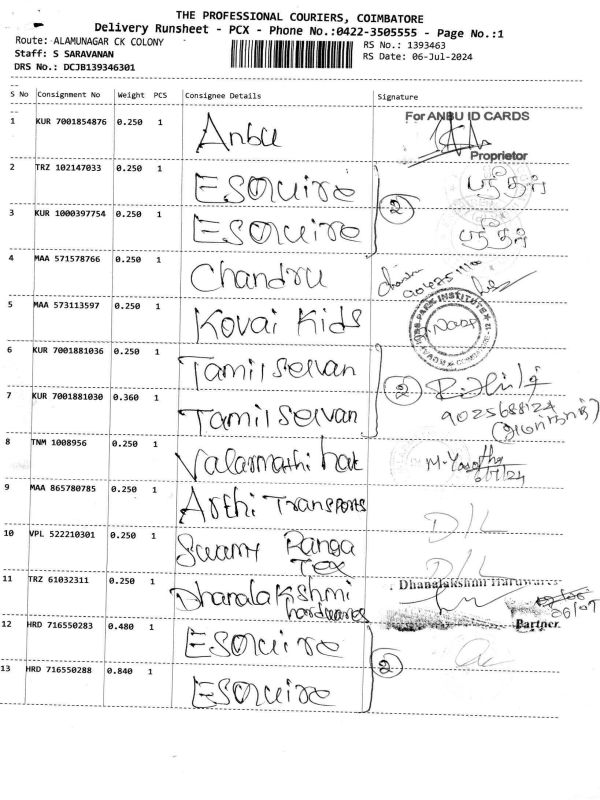 THE PROFESSIONAL COURIERS, COIMBATORE
Delivery Runsheet - PCX - Phone No.:0422-3505555 - Page No.:1
Route: ALAMUNAGAR CK COLONY
RS No.: 1393463
Staff: S SARAVANAN
RS Date: 06-Jul-2024
DRS No.: DCJB139346301
S No Consignment No Weight PCS Consignee Details Signature
For ANBU ID CARDS
1 KUR 7001854876 0.250 1 Anbu
Proprietor
2 TRZ 102147033 0.250 1 Esquire
2
3 KUR 1000397754 0.250 1 Esquire
4 MAA 571578766 0.250 1 Chandru
5 MAA 573113597 0.250 1 Kovai Kids
6 KUR 7001881036 0.250 1 Tamilselvan
2
7 KUR 7001881030 0.360 1 Tamilselvan 9025688124
8 TNM 1008956 0.250 1 Valarmathi M. Yasotha
6/7/24
9 MAA 865780785 0.250 1 Arthi Transports D/L
10 VPL 522210301 0.250 1 Swamy Ranga Tex D/L
11 TRZ 61032311 0.250 1 Dhanalakshmi hardwares
Dhanalakshmi Hardwares
06/07
Partner.
12 HRD 716550283 0.480 1 Esquire
2
13 HRD 716550288 0.840 1 Esquire